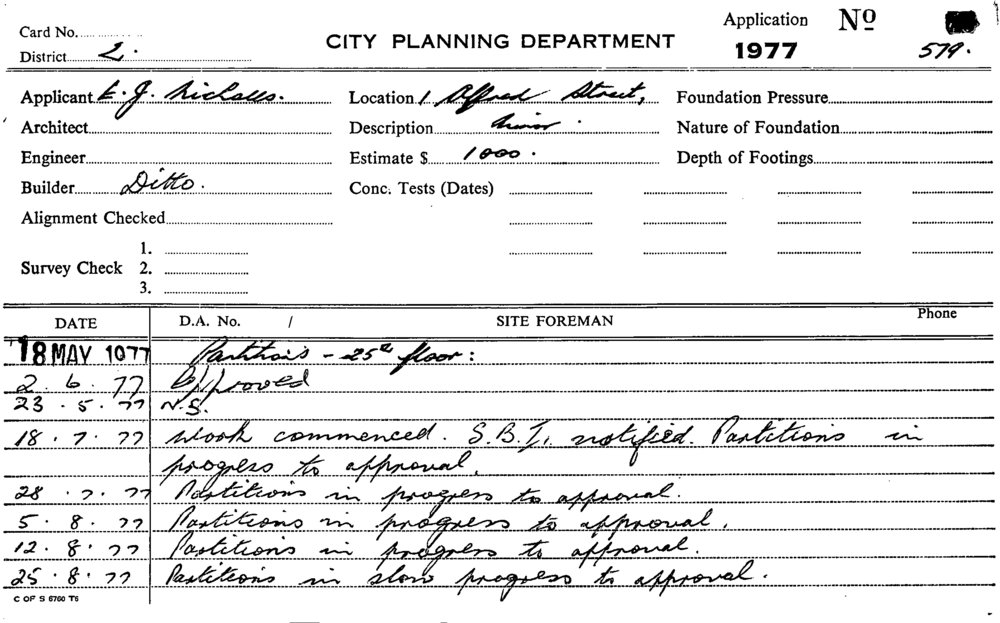 Card No.
Application Nº
CITY PLANNING DEPARTMENT
District 2.
1977
579.
Applicant E. J. Nicholls.
Location 1 Alfred Street,
Foundation Pressure
Architect
Description Minor.
Nature of Foundation
Engineer
Estimate $ 1000.
Depth of Footings
Builder Ditto.
Conc. Tests (Dates)
Alignment Checked
1.
Survey Check 2.
3.
DATE D.A. No. / SITE FOREMAN Phone
18 MAY 1977 Partitions - 25th floor:
2. 6. 77 Approved
23. 5. 77 N.S.
18. 7. 77 Work commenced. S.B.I. notified. Partitions in
progress to approval.
28. 7. 77 Partitions in progress to approval.
5. 8. 77 Partitions in progress to approval.
12. 8. 77 Partitions in progress to approval.
25. 8. 77 Partitions in slow progress to approval.
C OF S 6760 T6